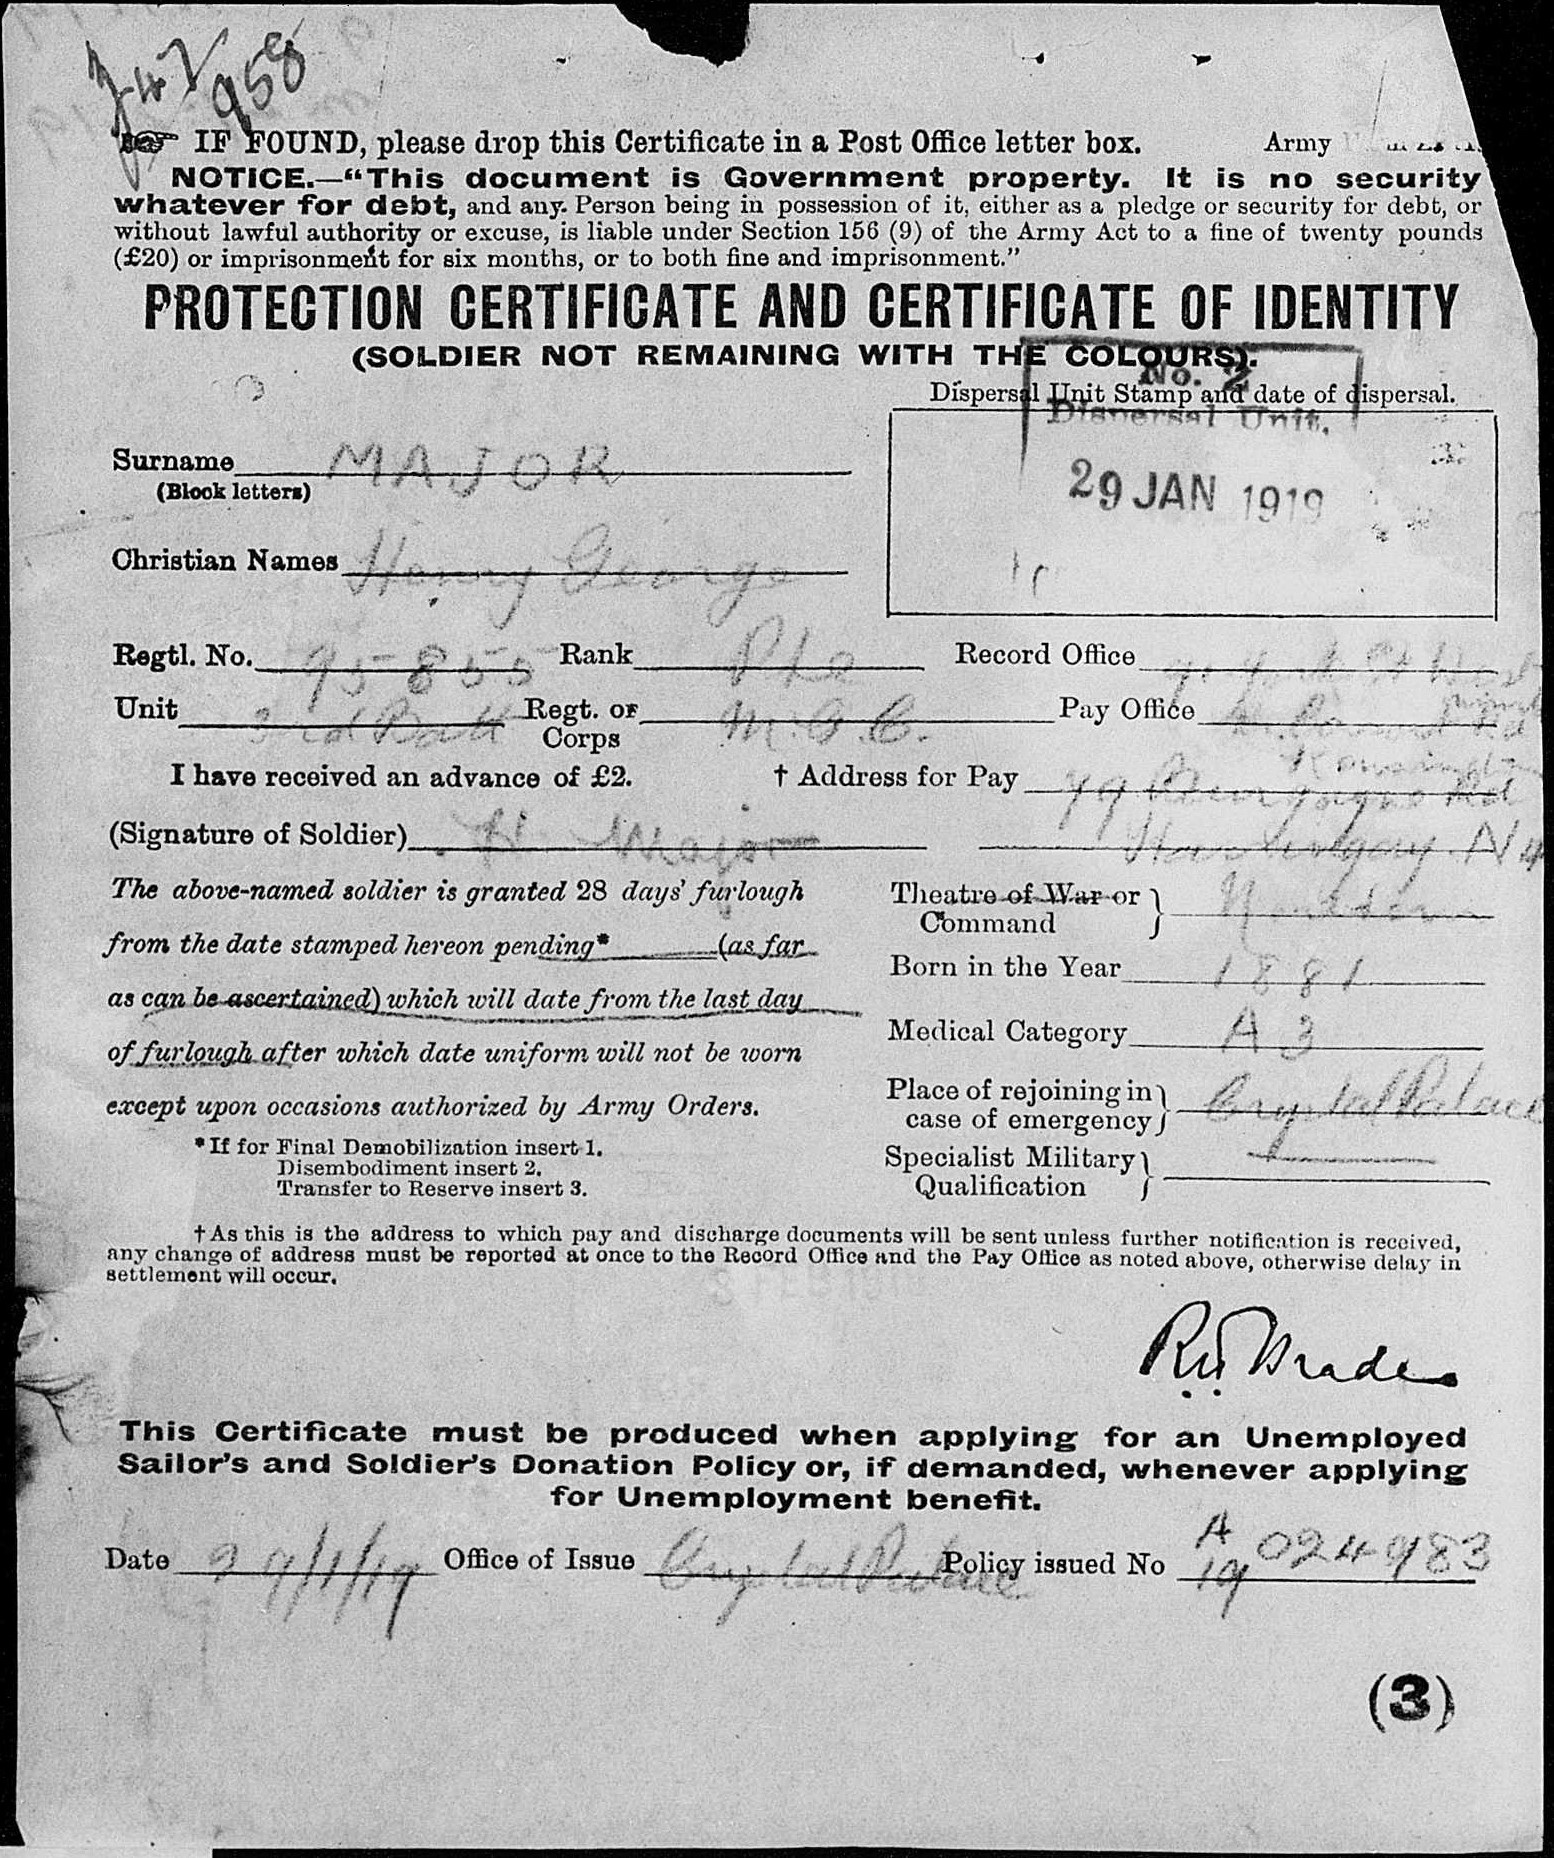 958
IF FOUND, please drop this Certificate in a Post Office letter box. Army
NOTICE.—“This document is Government property. It is no security
whatever for debt, and any. Person being in possession of it, either as a pledge or security for debt, or
without lawful authority or excuse, is liable under Section 156 (9) of the Army Act to a fine of twenty pounds
(£20) or imprisonment for six months, or to both fine and imprisonment.”
PROTECTION CERTIFICATE AND CERTIFICATE OF IDENTITY
(SOLDIER NOT REMAINING WITH THE COLOURS).
No. 2
Dispersal Unit Stamp and date of dispersal.
Dispersal Unit.
29 JAN 1919
Surname MAJOR
(Block letters)
Christian Names Henry George
Regtl. No. 95855 Rank Pte Record Office
Unit 3rd Batt Regt. or Corps M.G.C. Pay Office
I have received an advance of £2. † Address for Pay 79 Rd
(Signature of Soldier) H Major N 4
The above-named soldier is granted 28 days’ furlough
from the date stamped hereon pending* (as far
as can be ascertained) which will date from the last day
of furlough after which date uniform will not be worn
except upon occasions authorized by Army Orders.
*If for Final Demobilization insert 1.
Disembodiment insert 2.
Transfer to Reserve insert 3.
Theatre of War or
Command
Born in the Year 1881
Medical Category A 3
Place of rejoining in
case of emergency Crystal Palace
Specialist Military
Qualification
† As this is the address to which pay and discharge documents will be sent unless further notification is received,
any change of address must be reported at once to the Record Office and the Pay Office as noted above, otherwise delay in
settlement will occur.
This Certificate must be produced when applying for an Unemployed
Sailor’s and Soldier’s Donation Policy or, if demanded, whenever applying
for Unemployment benefit.
Date 29/1/19 Office of Issue Crystal Palace Policy issued No A/19 024983
(3)